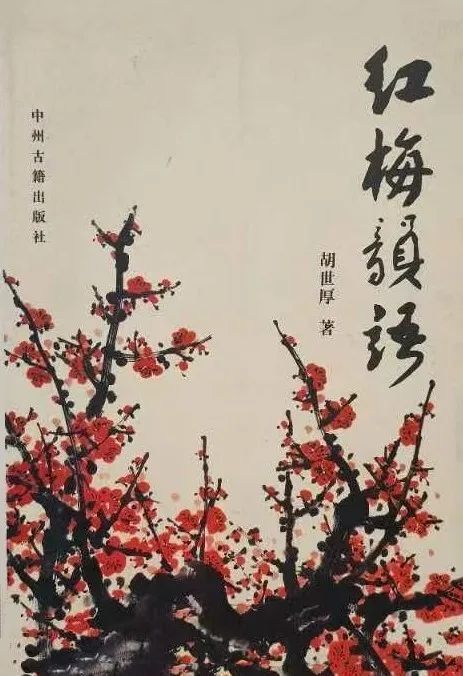 红梅韻语
胡世厚 著
中州古籍出版社